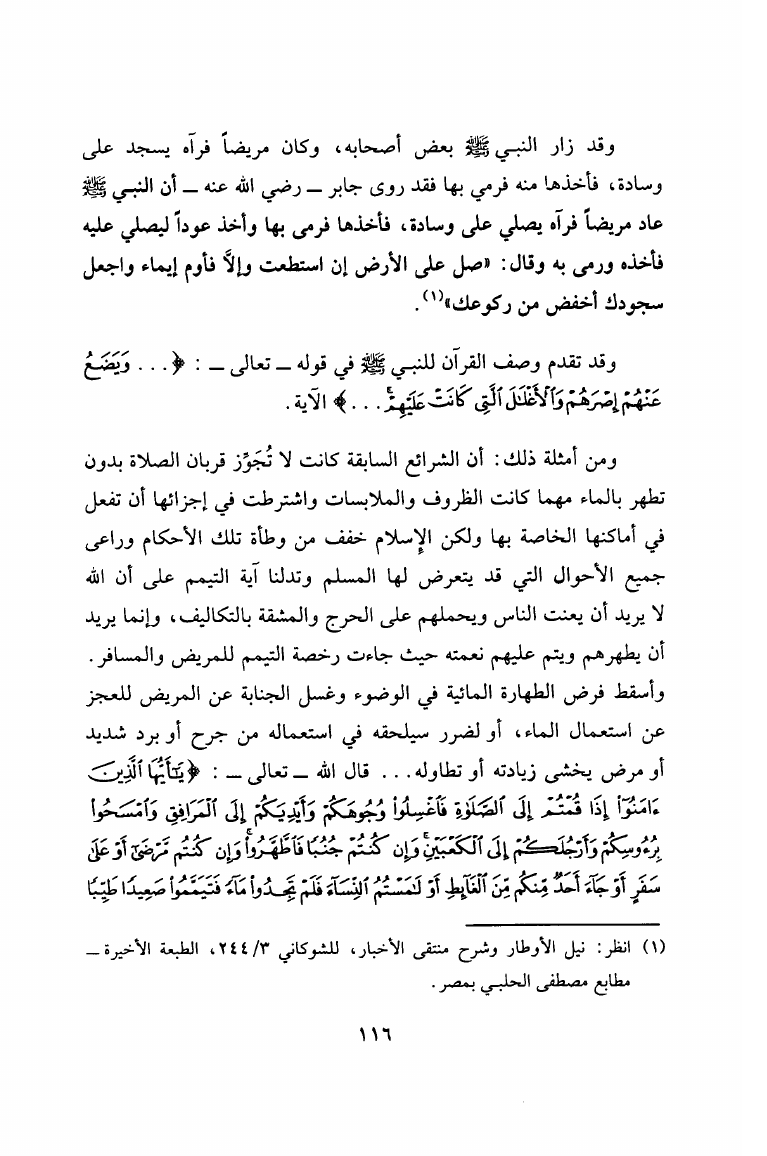 وقد زار النبي ﷺ بعض أصحابه، وكان مريضاً فرآه يسجد على
وسادة، فأخذها منه فرمي بها فقد روى جابر ـ رضي الله عنه ـ أن النبي ﷺ
عاد مريضاً فرآه يصلي على وسادة، فأخذها فرمى بها وأخذ عوداً ليصلي عليه
فأخذه ورمى به وقال: «صل على الأرض إن استطعت وإلاَّ فأوم إيماء واجعل
سجودك أخفض من ركوعك»(١).
وقد تقدم وصف القرآن للنبي ﷺ في قوله ـ تعالى ـ : ﴿... وَيَضَعُ
عَنْهُمْ إِصْرَهُمْ وَٱلْأَغْلَٰلَ ٱلَّتِى كَانَتْ عَلَيْهِمْۚ ...﴾ الآية.
ومن أمثلة ذلك: أن الشرائع السابقة كانت لا تُجَوِّز قربان الصلاة بدون
تطهر بالماء مهما كانت الظروف والملابسات واشترطت في إجزائها أن تفعل
في أماكنها الخاصة بها ولكن الإسلام خفف من وطأة تلك الأحكام وراعى
جميع الأحوال التي قد يتعرض لها المسلم وتدلنا آية التيمم على أن الله
لا يريد أن يعنت الناس ويحملهم على الحرج والمشقة بالتكاليف، وإنما يريد
أن يطهرهم ويتم عليهم نعمته حيث جاءت رخصة التيمم للمريض والمسافر.
وأسقط فرض الطهارة المائية في الوضوء وغسل الجنابة عن المريض للعجز
عن استعمال الماء، أو لضرر سيلحقه في استعماله من جرح أو برد شديد
أو مرض يخشى زيادته أو تطاوله... قال الله ـ تعالى ـ : ﴿يَٰٓأَيُّهَا ٱلَّذِينَ
ءَامَنُوٓا۟ إِذَا قُمْتُمْ إِلَى ٱلصَّلَوٰةِ فَٱغْسِلُوا۟ وُجُوهَكُمْ وَأَيْدِيَكُمْ إِلَى ٱلْمَرَافِقِ وَٱمْسَحُوا۟
بِرُءُوسِكُمْ وَأَرْجُلَكُمْ إِلَى ٱلْكَعْبَيْنِۚ وَإِن كُنتُمْ جُنُبًا فَٱطَّهَّرُوا۟ۚ وَإِن كُنتُم مَّرْضَىٰٓ أَوْ عَلَىٰ
سَفَرٍ أَوْ جَآءَ أَحَدٌ مِّنكُم مِّنَ ٱلْغَآئِطِ أَوْ لَٰمَسْتُمُ ٱلنِّسَآءَ فَلَمْ تَجِدُوا۟ مَآءً فَتَيَمَّمُوا۟ صَعِيدًا طَيِّبًا
(١) انظر: نيل الأوطار وشرح منتقى الأخبار، للشوكاني ٢٤٤/٣، الطبعة الأخيرة ـ
مطابع مصطفى الحلبي بمصر.
١١٦